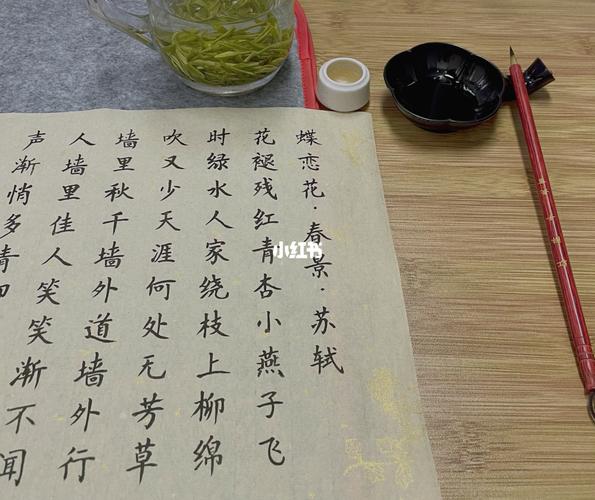 蝶恋花·春景·苏轼
花褪残红青杏小燕子飞
时绿水人家绕枝上柳绵
吹又少天涯何处无芳草
墙里秋千墙外道墙外行
人墙里佳人笑笑渐不闻
声渐悄多
小红书